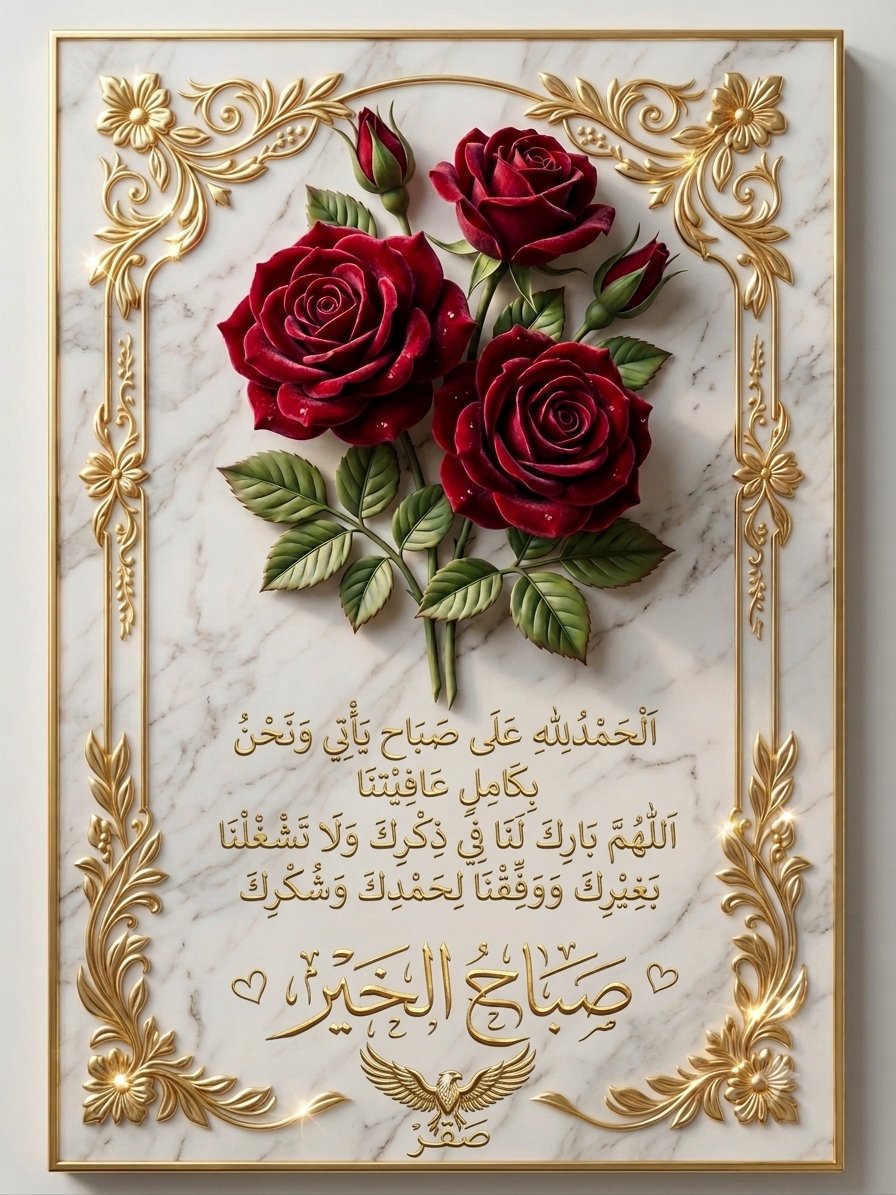 اَلْحَمْدُلِلّٰهِ عَلَى صَبَاح يَأْتِي وَنَحْنُ
بِكَامِلِ عَافِيْتِنَا
اَللّٰهُمَّ بَارِكَ لَنَا فِي ذِكْرِكَ وَلَا تَشْغْلْنَا
بَغِيْرِكَ وَوَفِّقْنَا لِحَمْدِكَ وَشُكْرِكَ
صَبَاحُ الخَيْر
صَقرْ